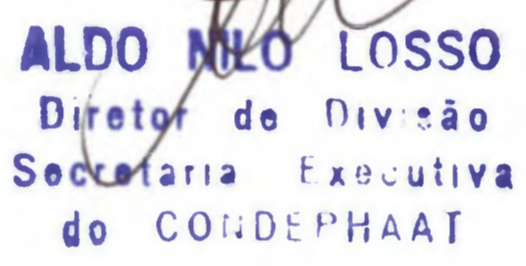 ALDO NILO LOSSO
Diretor de Divisão
Secretaria Executiva
do CONDEPHAAT